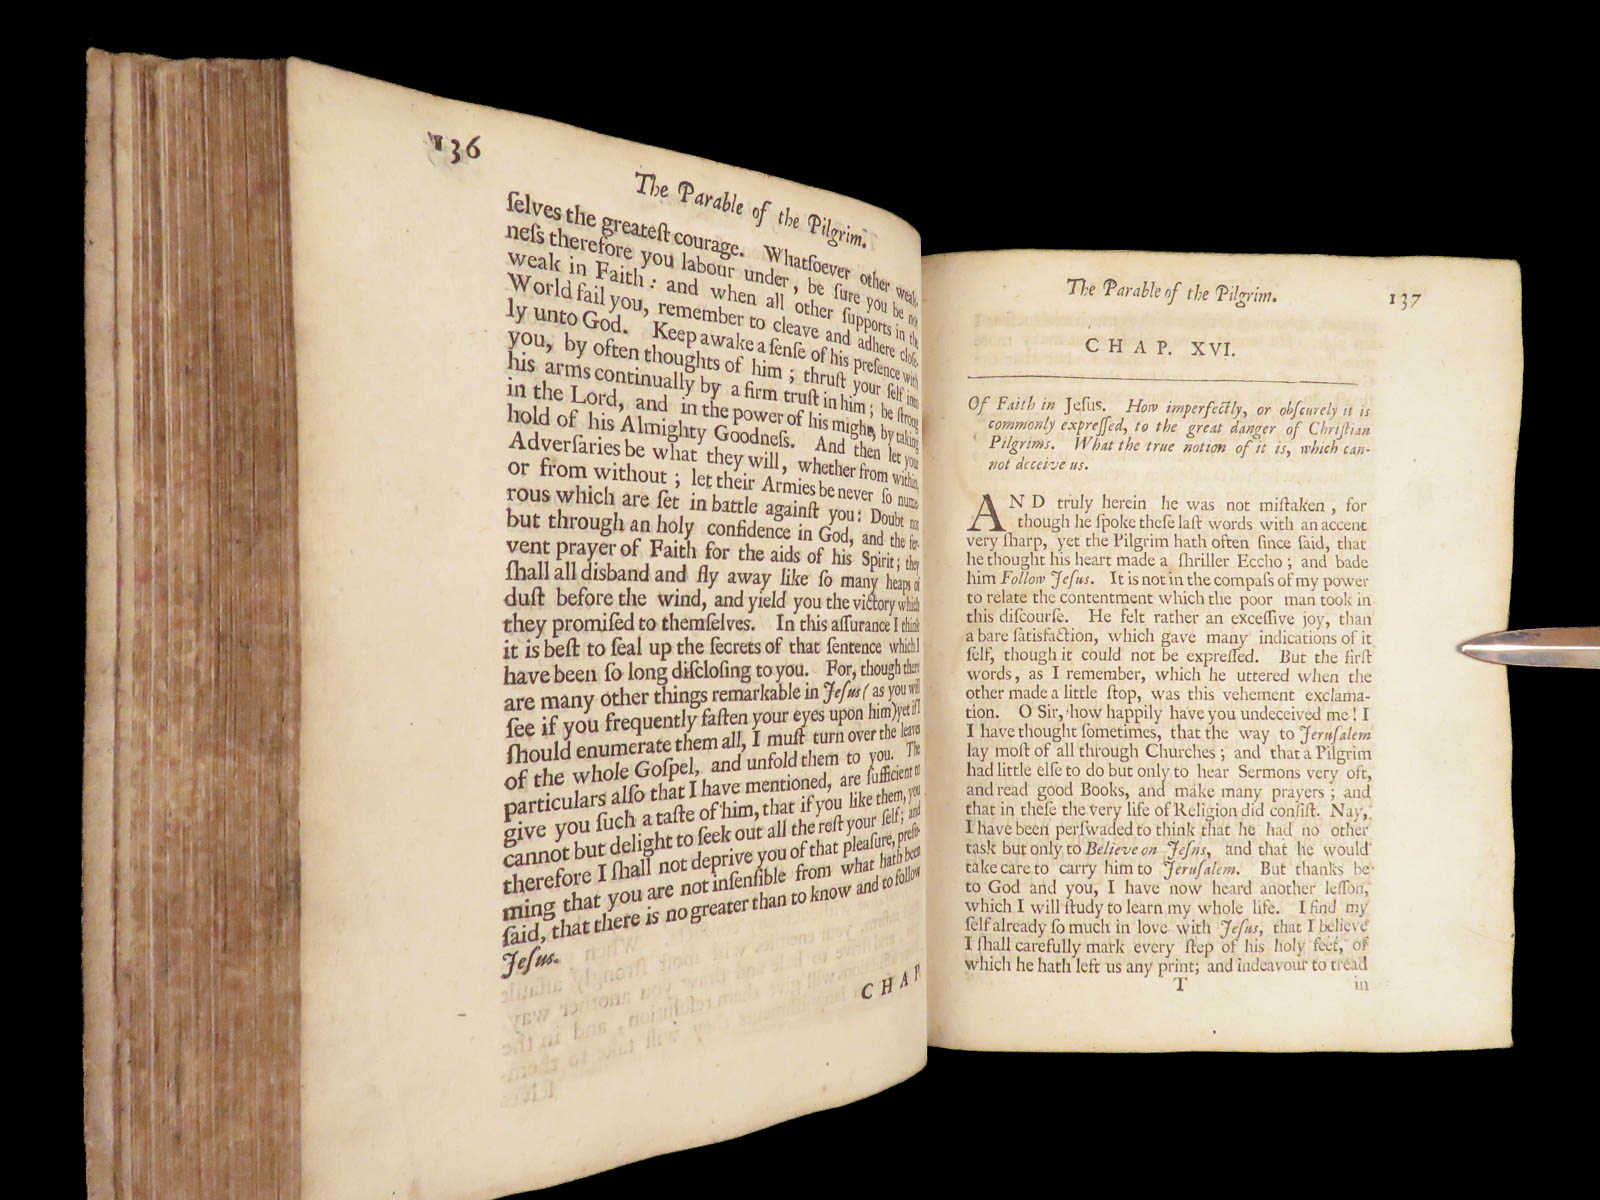 136
The Parable of the Pilgrim.
ſelves the greateſt courage. Whatſoever other weak-
neſs therefore you labour under, be ſure you be not
weak in Faith: and when all other ſupports in the
World fail you, remember to cleave and adhere cloſe-
ly unto God. Keep awake a ſenſe of his preſence with
you, by often thoughts of him; thruſt your ſelf into
his arms continually by a firm truſt in him; be ſtrong
in the Lord, and in the power of his might, by taking
hold of his Almighty Goodneſs. And then let your
Adverſaries be what they will, whether from within,
or from without; let their Armies be never ſo nume-
rous which are ſet in battle againſt you: Doubt not
but through an holy confidence in God, and the fer-
vent prayer of Faith for the aids of his Spirit; they
ſhall all disband and fly away like ſo many heaps of
duſt before the wind, and yield you the victory which
they promiſed to themſelves. In this aſſurance I think
it is beſt to ſeal up the ſecrets of that ſentence which I
have been ſo long diſcloſing to you. For, though there
are many other things remarkable in Jeſus (as you will
ſee if you frequently faſten your eyes upon him) yet if I
ſhould enumerate them all, I muſt turn over the leaves
of the whole Goſpel, and unfold them to you. The
particulars alſo that I have mentioned, are ſufficient to
give you ſuch a taſte of him, that if you like them, you
cannot but delight to ſeek out all the reſt your ſelf; and
therefore I ſhall not deprive you of that pleaſure, preſu-
ming that you are not inſenſible from what hath been
ſaid, that there is no greater than to know and to follow
Jeſus.
CHAP.
The Parable of the Pilgrim.
137
CHAP. XVI.
Of Faith in Jeſus. How imperfectly, or obſcurely it is
commonly expreſſed, to the great danger of Chriſtian
Pilgrims. What the true notion of it is, which can-
not deceive us.
AND truly herein he was not miſtaken, for
though he ſpoke theſe laſt words with an accent
very ſharp, yet the Pilgrim hath often ſince ſaid, that
he thought his heart made a ſhriller Eccho; and bade
him Follow Jeſus. It is not in the compaſs of my power
to relate the contentment which the poor man took in
this diſcourſe. He felt rather an exceſſive joy, than
a bare ſatisfaction, which gave many indications of it
ſelf, though it could not be expreſſed. But the firſt
words, as I remember, which he uttered when the
other made a little ſtop, was this vehement exclama-
tion. O Sir, how happily have you undeceived me! I
I have thought ſometimes, that the way to Jeruſalem
lay moſt of all through Churches; and that a Pilgrim
had little elſe to do but only to hear Sermons very oft,
and read good Books, and make many prayers; and
that in theſe the very life of Religion did conſiſt. Nay,
I have been perſwaded to think that he had no other
task but only to Believe on Jeſus, and that he would
take care to carry him to Jeruſalem. But thanks be
to God and you, I have now heard another leſſon,
which I will ſtudy to learn my whole life. I find my
ſelf already ſo much in love with Jeſus, that I believe
I ſhall carefully mark every ſtep of his holy feet, of
which he hath left us any print; and indeavour to tread
T in